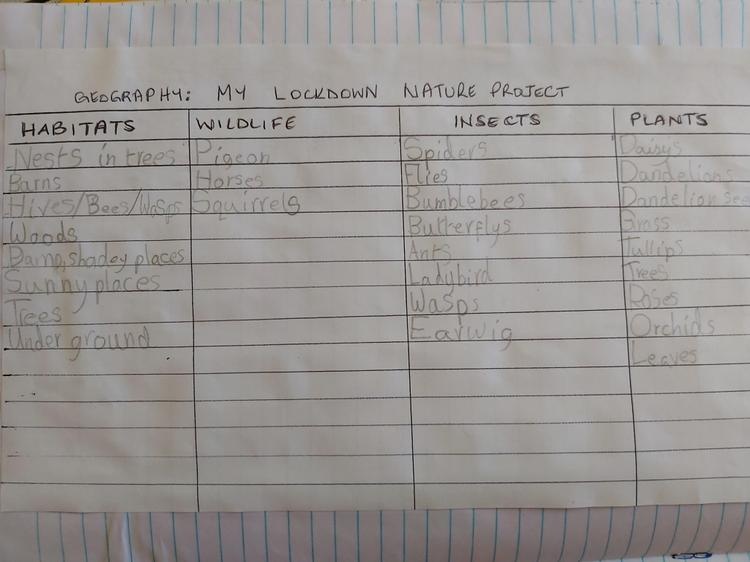 GEOGRAPHY: MY LOCKDOWN NATURE PROJECT
HABITATS WILDLIFE INSECTS PLANTS
Nests in trees Pigeon Spiders Daisy's
Barns Horses Flies Dandelions
Hives/Bees/Wasps Squirrels Bumblebees Dandelion see
Woods Butterflys Grass
Damp, shadey places Ants Tullips
Sunny places Ladybird Trees
Trees Wasps Roses
Under ground Earwig Orchids
Leaves